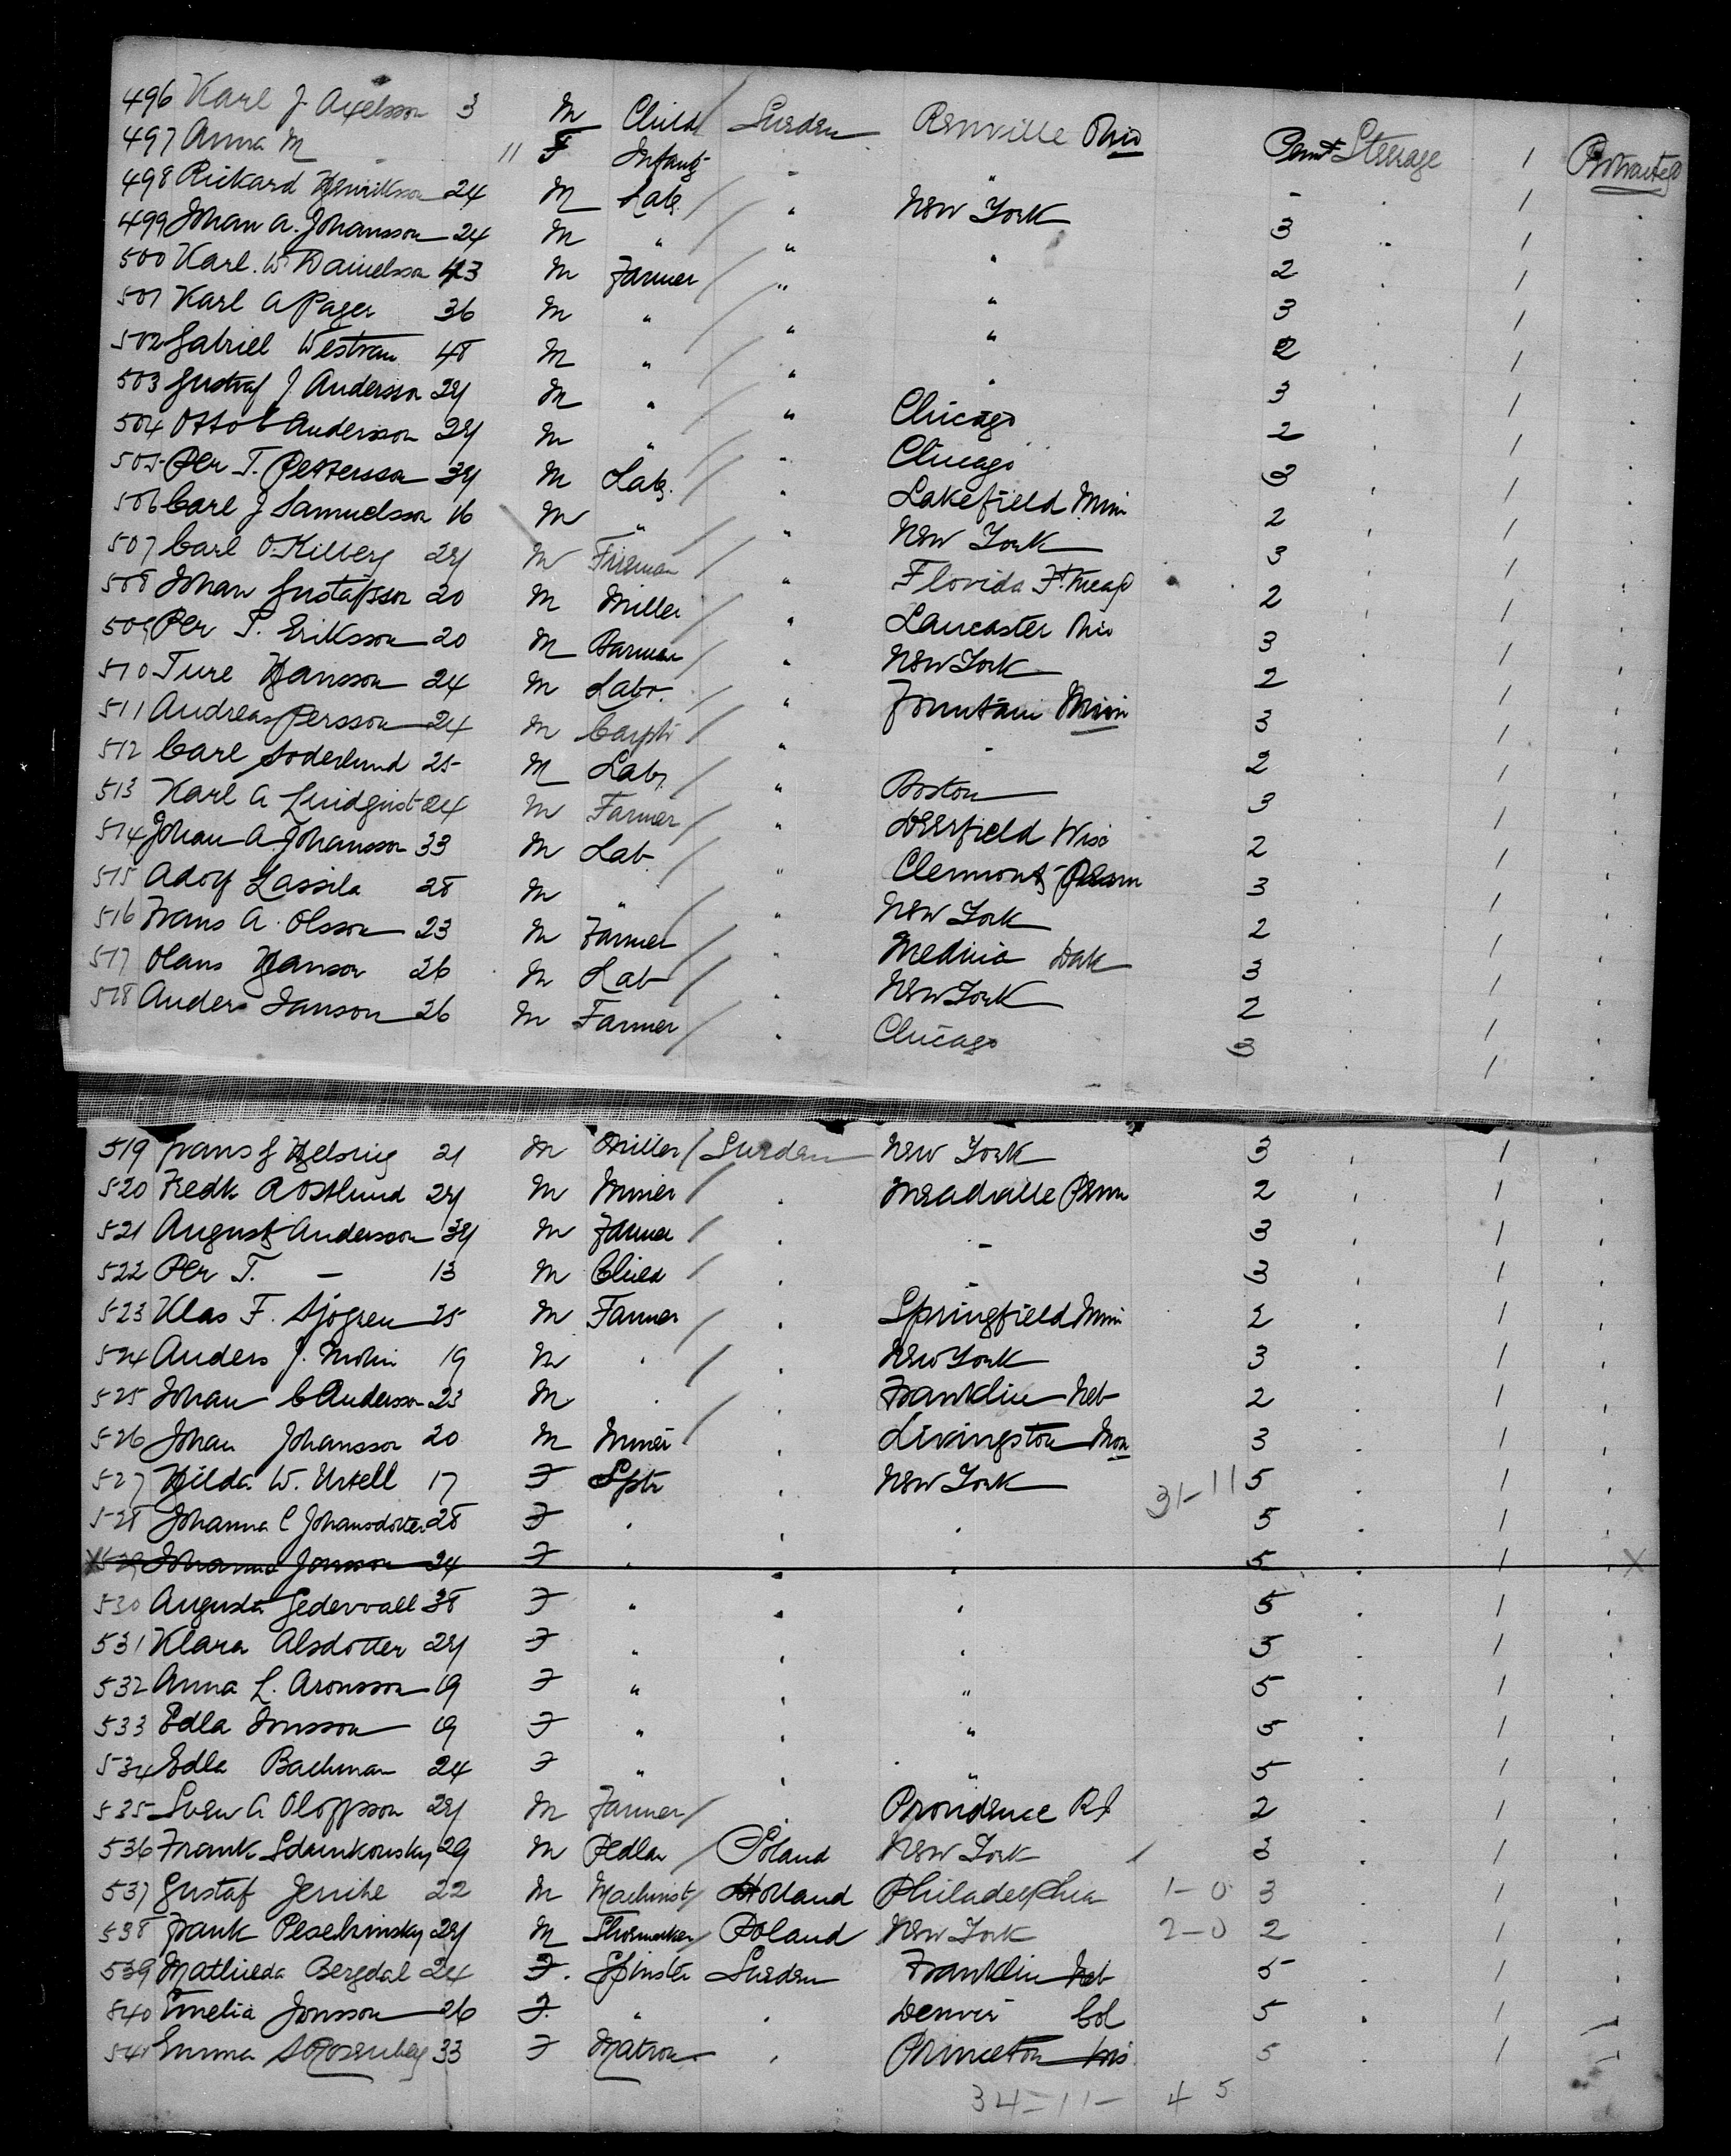 496 Karl J. Axelsson 3 M Child / Sweden Renville Ohio Permt Steerage 1 Protracted
497 Anna M - 11 F Infant - " - . 1 .
498 Rickard Henrikson 24 M Lab. / " New York 3 1 .
499 Johan A. Johansson 24 M " / " " 2 . 1 .
500 Karl. W. Danielsson 43 M Farmer / " " 3 1 .
501 Karl A Pager 36 M " / " " 2 . 1 .
502 Gabriel Westran 48 M " / " " 3 . 1 .
503 Gustaf J Andersson 24 M " / " Chicago 2 . 1 .
504 Otto E Andersson 24 M " / " Chicago 3 . 1 .
505 Per T. Pettersson 34 M Lab. / " Lakefield Minn 2 . 1 .
506 Carl J Samuelsson 16 M " " New York 3 . 1 .
507 Carl O. Killberg 24 M Fireman / " Florida 2 . 1 .
508 Johan Gustafsson 20 M Miller / " Lancaster Ohio 3 . 1 .
509 Per S. Eriksson 20 M Barman / " New York 2 1 .
510 Ture Hansson 24 M Labr. / " Fountain Minn 3 . 1 .
511 Andreas Persson 24 M Carptr / " - 2 . 1 .
512 Carl Soderlund 25 M Lab. / " Boston 3 . 1 .
513 Karl A Lindqvist 24 M Farmer / " Deerfield Wisc 2 . 1 .
514 Johan A Johansson 33 M Lab / " Clermont Penn 3 . 1 .
515 Adolf Lassila 28 M " " New York 2 . 1 .
516 Frans A. Olsson 23 M Farmer / " Medina Dak 3 . 1 .
517 Olaus Hanson 26 M Lab / . New York 2 . 1 .
518 Anders Janson 26 M Farmer / . Chicago 3 . 1 .
519 Frans J Helsing 21 M Miller / Sweden New York 3 . 1 .
520 Fredk A Ostlund 24 M Miner / . Meadville Penn 2 . 1 .
521 August Andersson 34 M Farmer / . - 3 . 1 .
522 Per T. - 13 M Child / . - 3 . 1 .
523 Klas F. Sjogren 25 M Farmer / . Springfield Minn 2 . 1 .
524 Anders J. Molin 19 M . / . New York 3 . 1 .
525 Johan C Andersson 23 M . / . Franklin Neb 2 . 1 .
526 Johan Johansson 20 M Miner / . Livingston Mon 3 . 1 .
527 Hilda W. Urtell 17 F Spts . New York 31-11 5 . 1 .
528 Johanna C Johansdotter 28 F . . . 5 . 1 .
X 529 Johanna Jonsson 24 F . . . 5 . 1 . X
530 Augusta Gedervall 38 F " . . 5 . 1 .
531 Klara Alsdotter 24 F " . . 5 . 1 .
532 Anna L. Aronsson 19 F " . " 5 . 1 .
533 Edla Jonsson 19 F " . " 5 . 1 .
534 Edla Backman 24 F " . " 5 . 1 .
535 Sven A Oloffsson 24 M Farmer / . Providence R I 2 . 1 .
536 Frank Sdankonsky 29 M Pedlar / Poland New York 3 . 1 .
537 Gustaf Jerrihe 22 M Machinist / Holland Philadelphia 1-0 3 . 1 .
538 Frank Peschinsky 24 M Shoemaker / Poland New York 2-0 2 . 1 .
539 Mathilda Bergdal 24 F. Spinster Sweden Franklin Neb 5 . 1 .
540 Emelia Jonsson 26 F. " . Denver Col 5 . 1
541 Emma S Rosenberg 33 F Matron . Princeton 5 . 1
34-11- 4 5